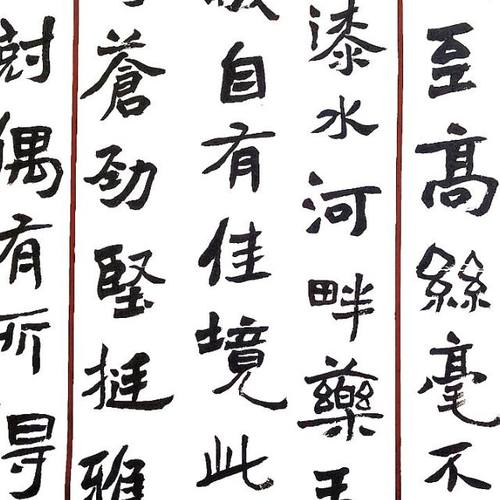 至高絲毫不
漆水河畔藥王
自有佳境此
蒼勁堅挺雅
偶有所得